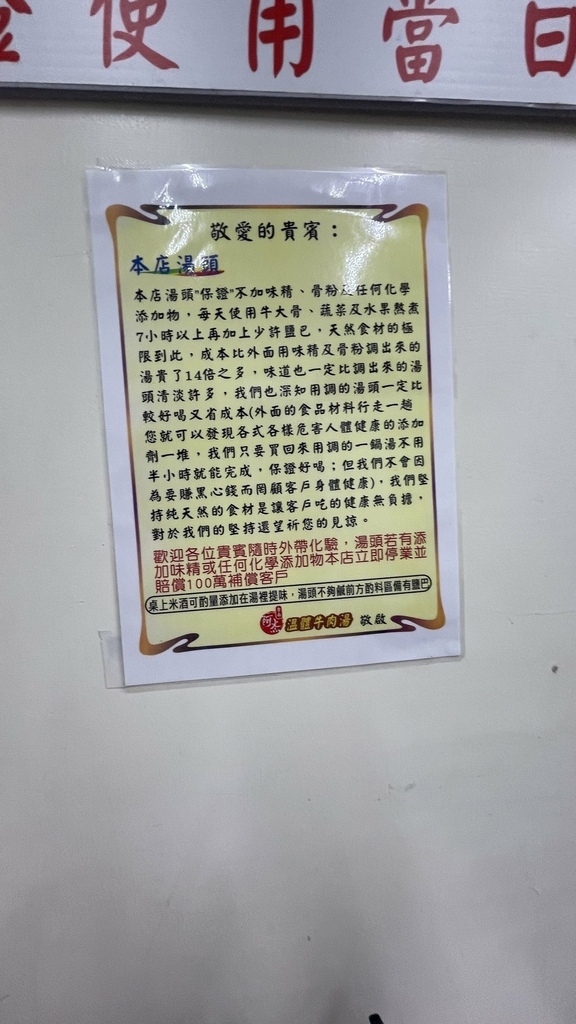 使用當日
敬愛的貴賓：
本店湯頭
本店湯頭"保證"不加味精、骨粉及任何化學
添加物，每天使用牛大骨、蔬菜及水果熬煮
7小時以上再加上少許鹽巴，天然食材的極
限到此，成本比外面用味精及骨粉調出來的
湯貴了14倍之多，味道也一定比調出來的湯
頭清淡許多，我們也深知用調的湯頭一定比
較好喝又省成本(外面的食品材料行走一趟
您就可以發現各式各樣危害人體健康的添加
劑一堆，我們只要買回來用調的一鍋湯不用
半小時就能完成，保證好喝；但我們不會因
為要賺黑心錢而罔顧客戶身體健康)，我們堅
持純天然的食材是讓客戶吃的健康無負擔，
對於我們的堅持還望祈您的見諒。
歡迎各位貴賓隨時外帶化驗，湯頭若有添
加味精或任何化學添加物本店立即停業並
賠償100萬補償客戶
桌上米酒可酌量添加在湯裡提味，湯頭不夠鹹前方酌料區備有鹽巴
溫體牛肉湯 敬啟